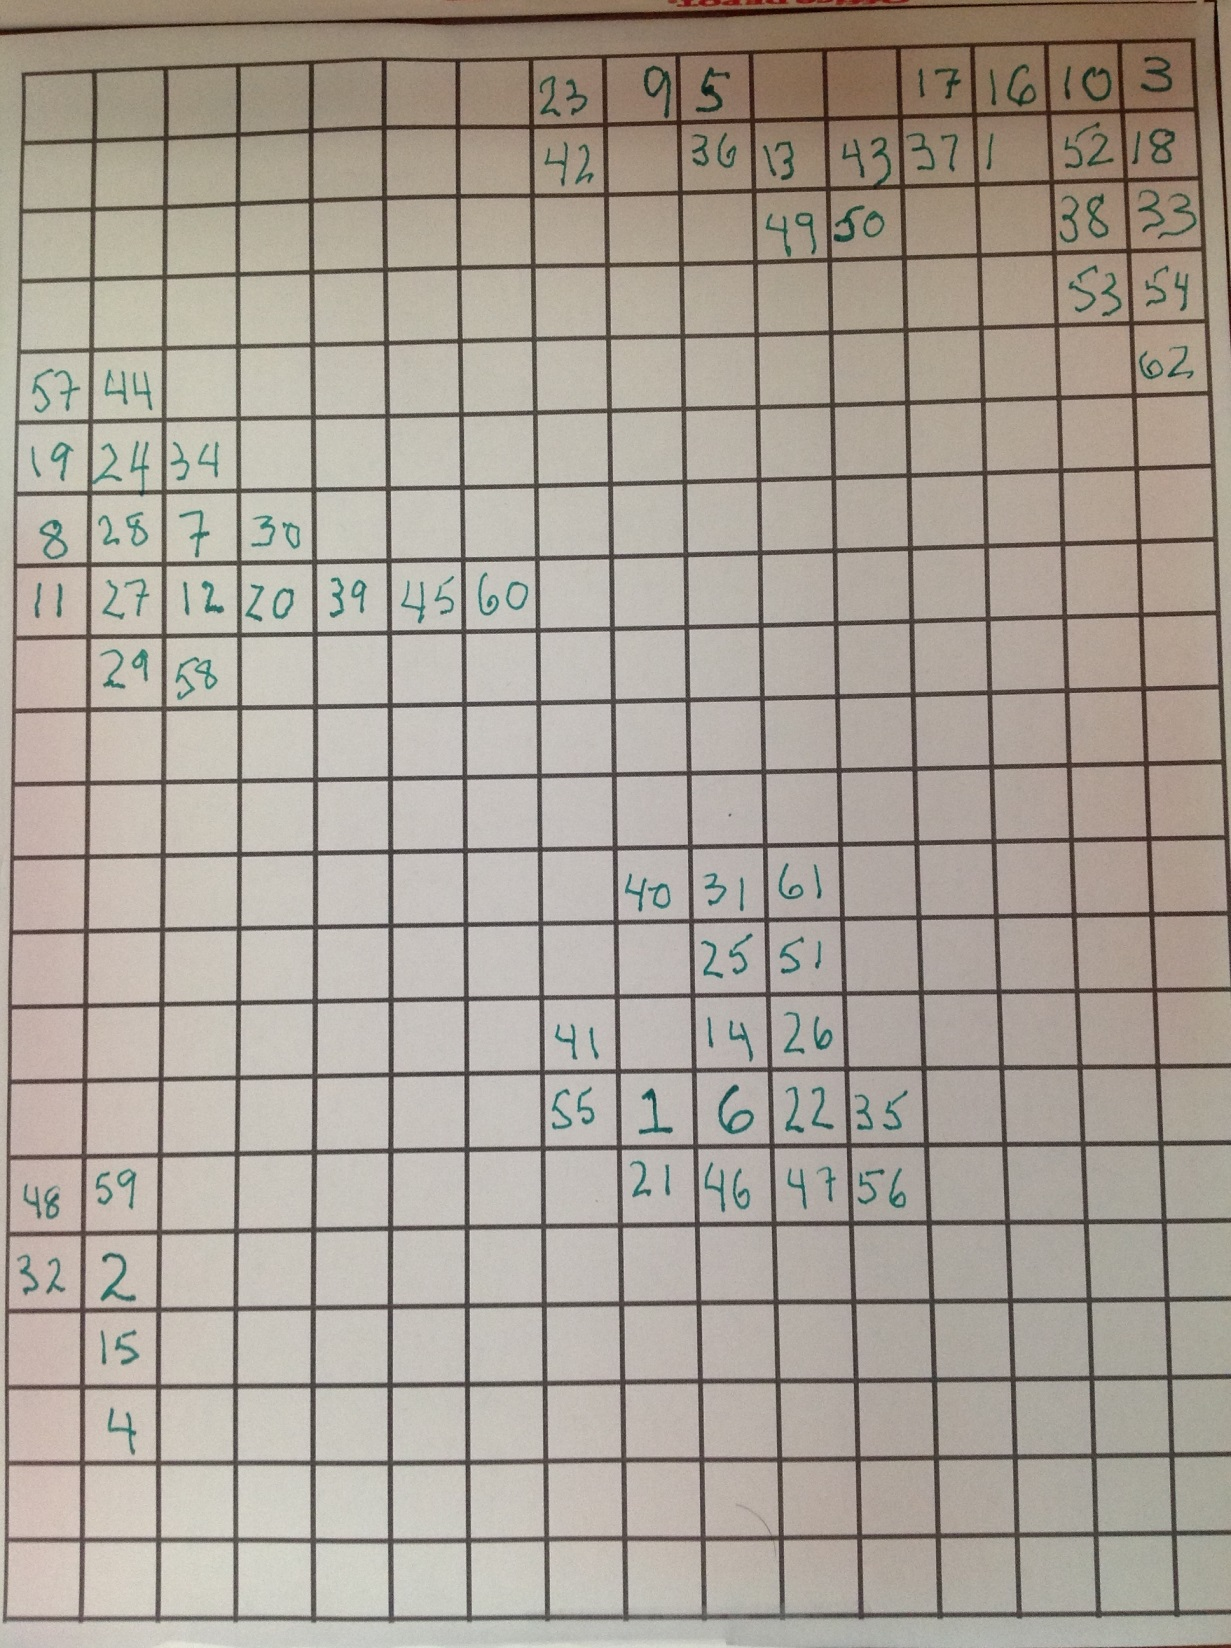 23 9 5 17 16 10 3
42 36 13 43 37 1 52 18
49 50 38 33
53 54
57 44 62
19 24 34
8 28 7 30
11 27 12 20 39 45 60
29 58
40 31 61
25 51
41 14 26
55 1 6 22 35
48 59 21 46 47 56
32 2
15
4